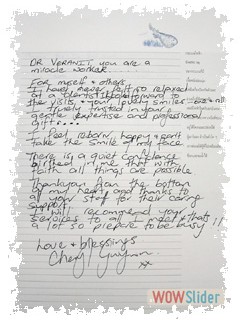 DR VERANIT, you are a
miracle worker....
For myself & others
I have never felt so relaxed
at a dentist & look forward to
the visits, & your lovely smiles
I truely trusted in your
gentle expertise and professional
gift...
I feel reborn, happy & can't
take the smile of my face
There is a quiet confidence
in me that with
faith all things are possible
Thankyou from the bottom
of my heart and thanks to
all your staff for their caring
support.
I will recommend your
services to all I meet & thats
a lot so prepare to be busy
Love & blessings
Cheryl
xx
WOWSlider